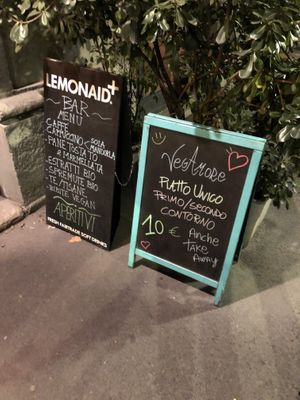 LEMONAID+
BAR
MENU
CAFFE
CAPPUCCINO SOIA
MANDORLA
PANE TOSTATO
& MARMELLATA
ESTRATTI BIO
SPREMUTE BIO
TE/TISANE
BIBITE VEGAN
APERITIVI
FRESH FAIRTRADE SOFT DRINKS
VegAmore
PIATTO UNICO
PRIMO/SECONDO
CONTORNO
10 € Anche
TAKE
AWAY